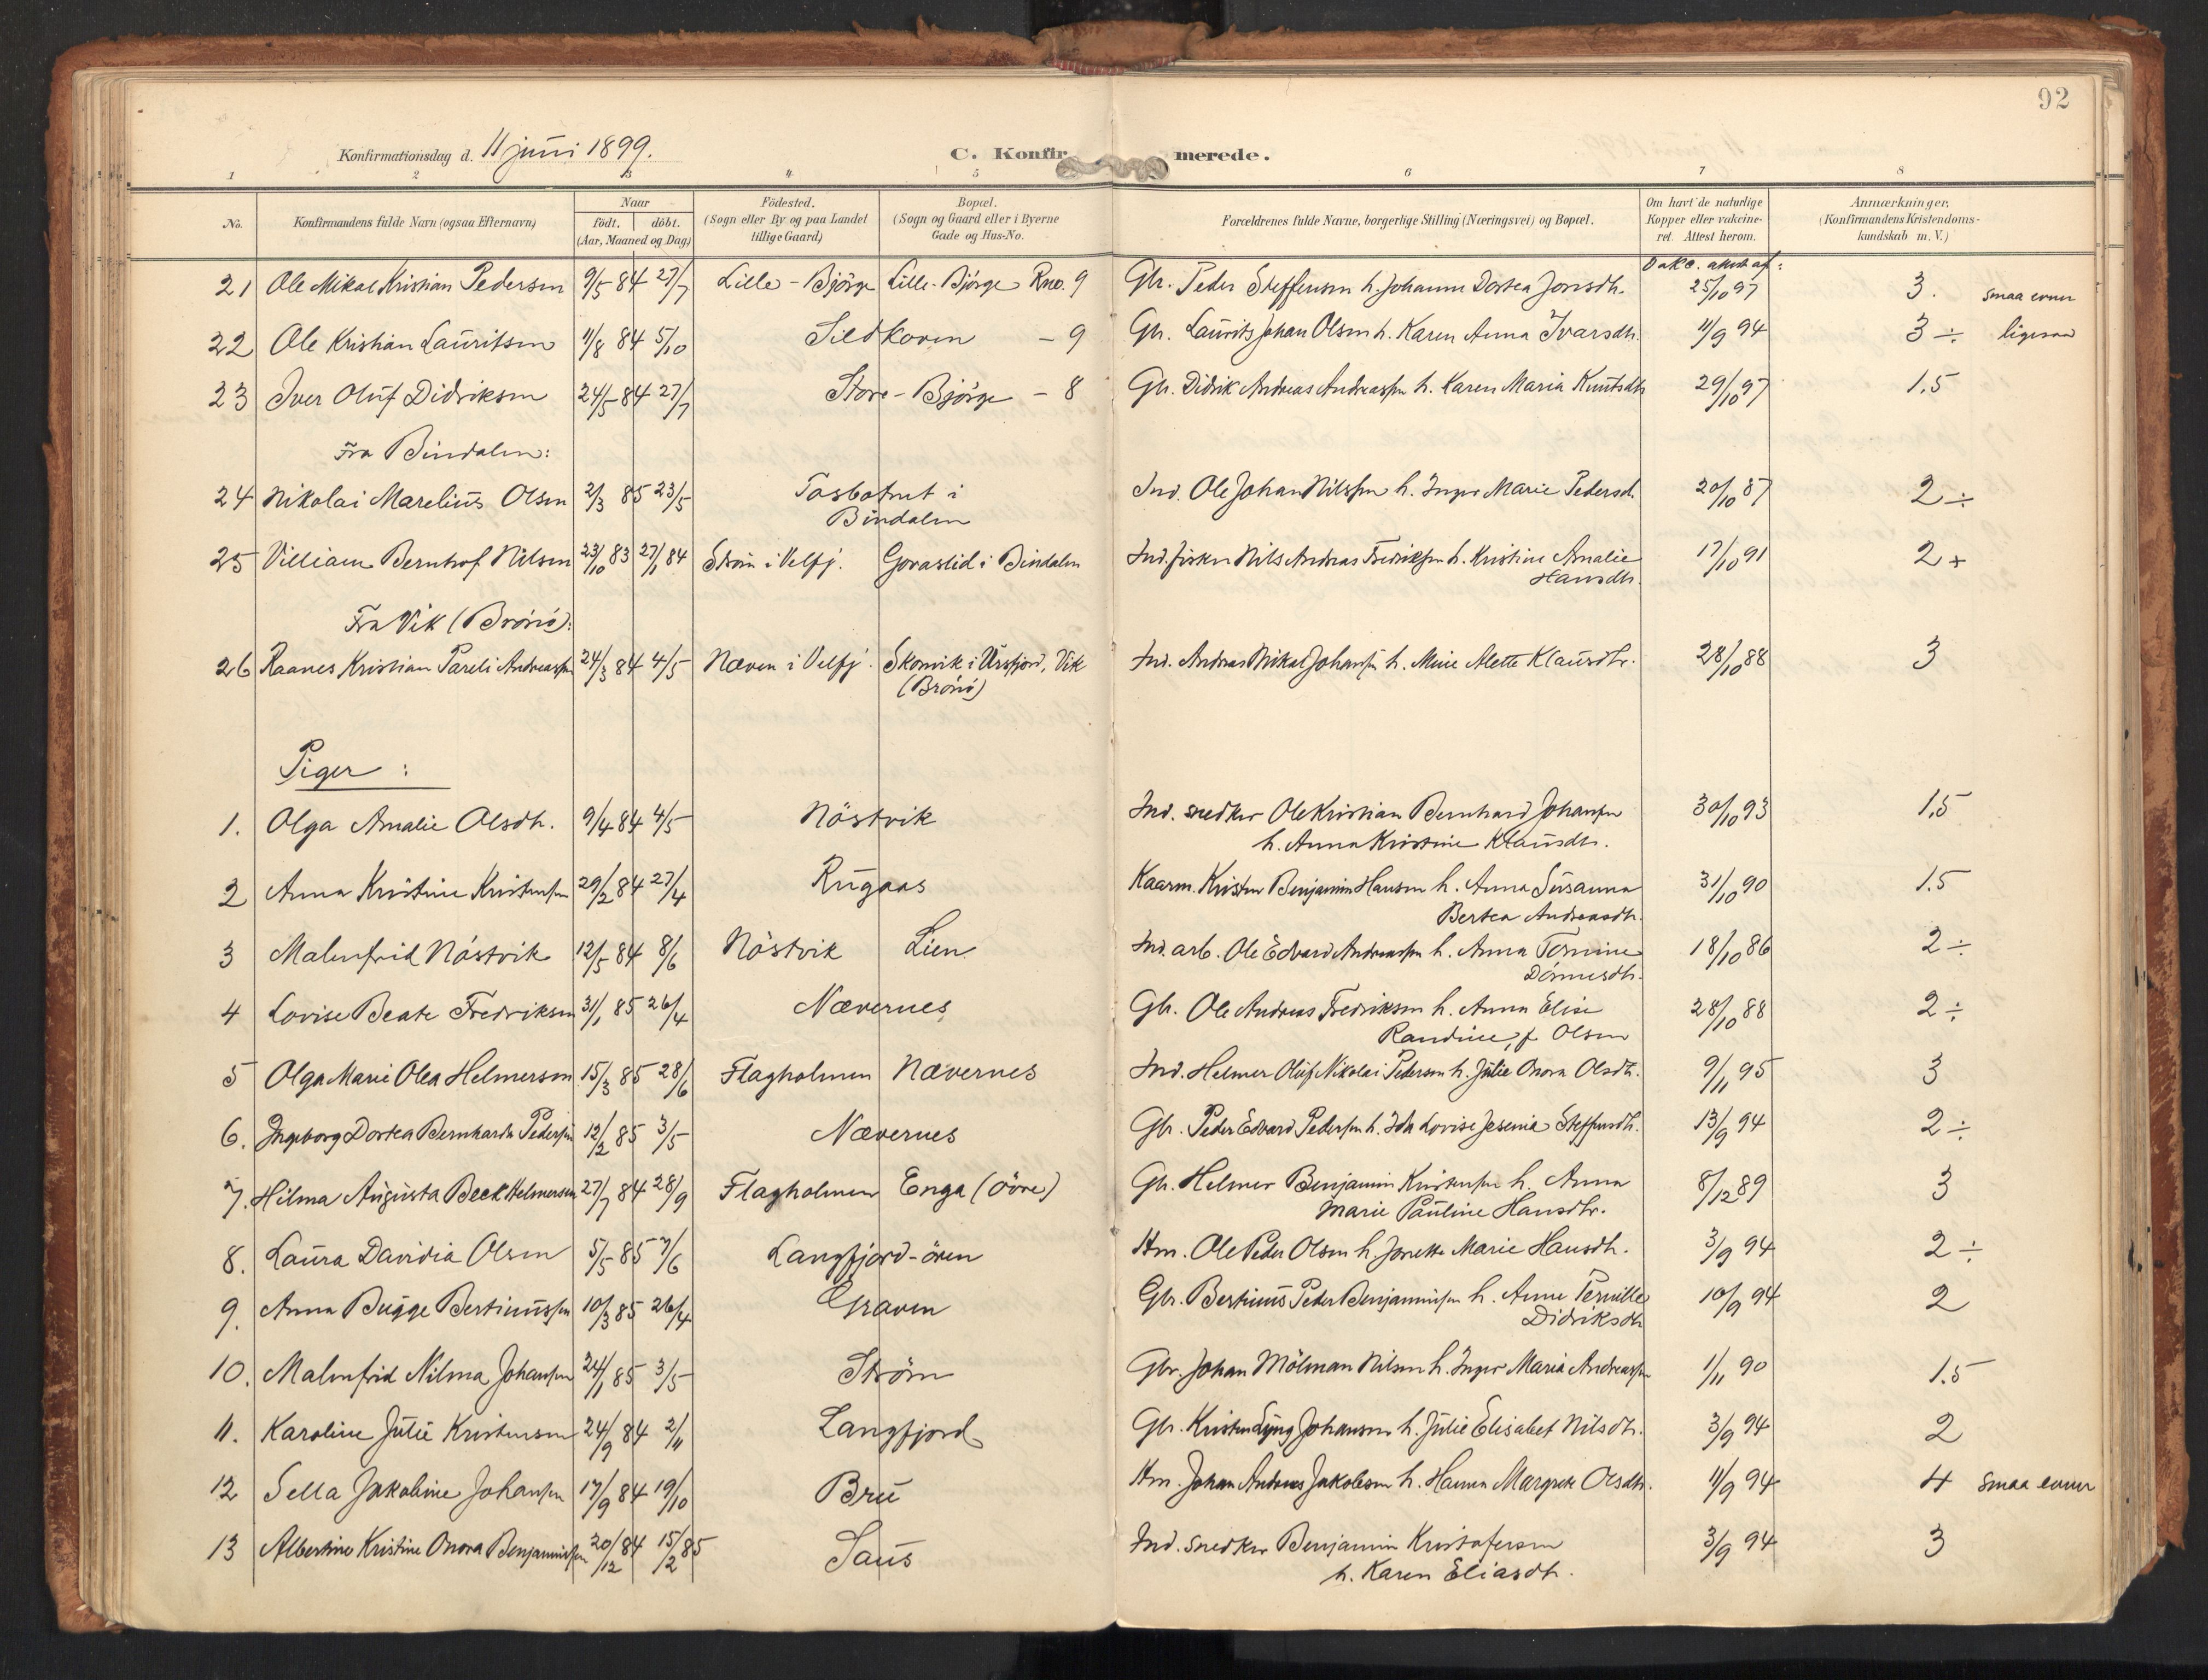 92
Konfirmationsdag d. 11 juni 1899. C. Konfirmerede.
1 2 3 4 5 6 7 8
No. Konfirmandens fulde Navn (ogsaa Efternavn) Naar født. døbt. (Aar, Maaned og Dag) Fødested. (Sogn eller By og paa Landet tillige Gaard) Bopæl. (Sogn og Gaard eller i Byerne Gade og Hus-No. Forældrenes fulde Navne, borgerlige Stilling (Næringsvei) og Bopæl. Om havt de naturlige Kopper eller vakcineret. Attest herom. Anmærkninger. (Konfirmandens Kristendomskundskab m. V.)
21 Ole Mikal Kristian Pedersen 9/5 84 27/7 Lille-Björge Lille-Björge Rno. 9 Gbr. Peder Steffensen h. Johanna Dortea Jonsdtr. 25/10 97 3. smaa evner
22 Ole Kristian Lauritsen 11/8 84 5/10 Sildkoven - 9 Gbr. Laurits Johan Olsen h. Karen Anna Ivarsdtr. 11/9 94 3 ÷ ligesaa
23 Iver Oluf Didriksen 24/5 84 27/7 Store-Björge - 8 Gbr. Didrik Andreas Andreassen h. Karen Maria Knutsdtr 29/10 97 1.5
Fra Bindalen:
24 Nikolai Marelius Olsen 2/3 85 23/5 Tosbotnet i Ind. Ole Johan Nilssen h. Inger Marie Pedersd. 20/10 87 2 ÷
Bindalen
25 Villiam Bernhof Nilsen 23/10 83 27/1 84 Ström i Velfj. Goraslid i Bindalen Ind. fisker Nils Andreas Fredriksen h. Kristine Amalie 17/10 91 2 +
Hansdtr.
Fra Vik (Brönö):
26 Raanes Kristian Pareli Andreassen 24/3 84 4/5 Næven i Velfj. Skomvik i Ursfjord, Vik Ind. Andreas Mikal Johansen h. Mine Alette Klausdtr. 28/10 88 3
(Brönö)
Piger :
1. Olga Amalie Olsdtr. 9/4 84 4/5 Nöstvik Ind. snedker Ole Kristian Bernhard Johansen 30/10 93 1,5
h. Anna Kristine Klausdtr.
2 Anna Kristine Kristensen 29/2 84 27/4 Rugaas Kaarm. Kristen Benjamin Hansen h. Anna Susanna 31/10 90 1.5
Bertea Andreasdtr.
3 Malmfrid Nöstvik 12/5 84 8/6 Nöstvik Lien Ind. arb. Ole Edvard Andreassen h. Anna Tomine 18/10 86 2 ÷
Dönnesdtr.
4 Lovise Beate Fredriksen 31/1 85 26/4 Nævernes Gbr. Ole Andreas Fredriksen h. Anna Elise 28/10 88 2 ÷
Randine, f. Olsen
5 Olga Marie Olea Helmersen 15/3 85 28/6 Flagholmen Nævernes Ind. Helmer Oluf Nikolai Pedersen h. Julie Onora Olsdtr. 9/11 95 3
6. Ingeborg Dortea Bernharda Pedersen 12/2 85 3/5 Nævernes Gbr. Peder Edvard Pedersen h. Ida Lovise Jesenia Steffensdtr. 13/9 94 2 ÷
7. Hilma Augusta Beck Helmersen 27/7 84 28/9 Flagholmen Enga (övre) Gbr. Helmer Benjamin Kristensen h. Anna 8/12 89 3
Marie Pauline Hansdtr.
8. Laura Davidia Olsen 5/5 85 7/6 Langfjord-ören Hm. Ole Peder Olsen h. Jonette Marie Hansdtr. 3/9 94 2 ÷
9. Anna Bugge Bertinussen 10/3 85 26/4 Graven Gbr. Bertinus Peder Benjaminsen h. Anne Pernille 10/9 94 2
Didriksdtr
10. Malmfrid Nilma Johansen 24/1 85 3/5 Ström Gbr. Johan Mölman Nilsen h. Inger Maria Andreassen 1/11 90 1.5
11. Karoline Julie Kristensen 24/9 84 2/11 Langfjord Gbr. Kristen Lyng Johansen h. Julie Elisabet Nilsdtr. 3/9 94 2
12 Sella Jakobine Johansen 17/9 84 19/10 Bru Hm. Johan Andreas Jakobsen h. Hanna Margrete Olsdtr. 11/9 94 4 smaa evner
13 Albertine Kristine Onora Benjaminsen 20/12 84 15/2 85 Saus Ind. snedker Benjamin Kristofersen 3/9 94 3
h. Karen Eliasdtr.